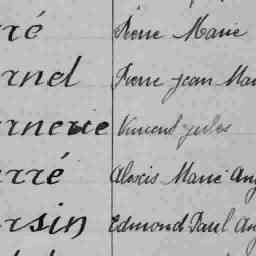 rré Pierre Marie
rnel Pierre Jean Mar
rnerie Vincent Jules
rré Alexis Marie Ang
rsin Edmond Paul Au